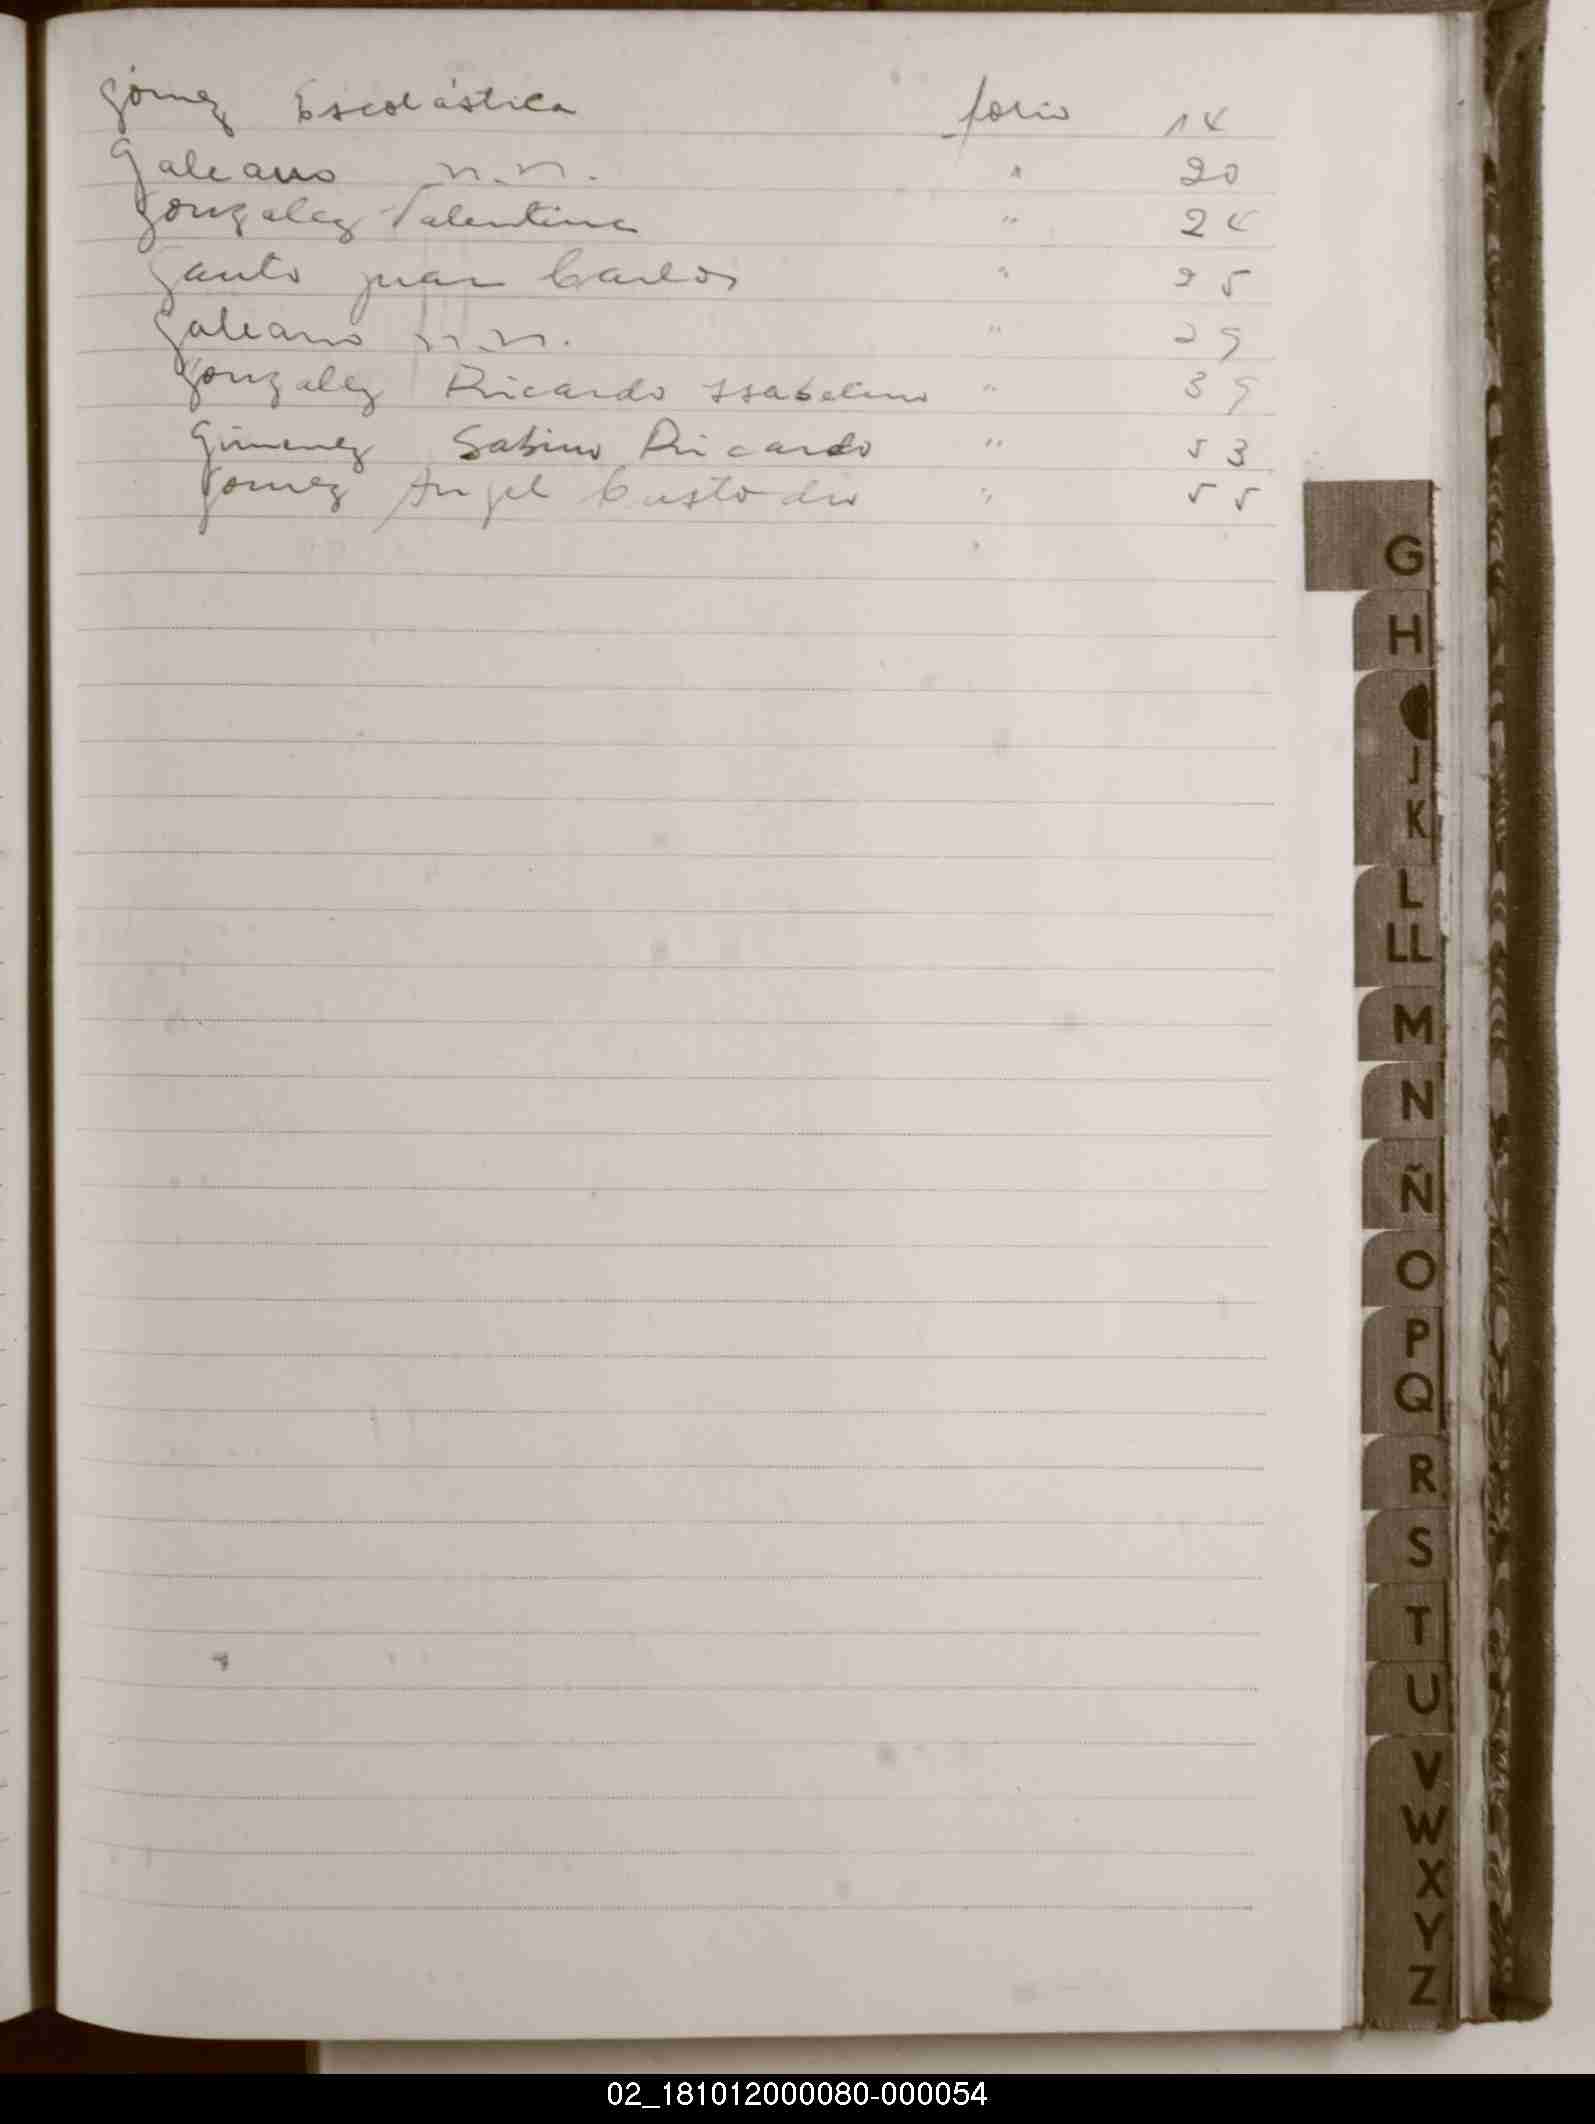 Gómez Escolástica folio 14
Galeano n.n. " 20
Gonzalez Valentina " 24
Gauto Juan Carlos " 25
Galeano n.n. " 29
Gonzalez Ricardo Isabelino " 39
Gimenez Sabino Ricardo " 53
Gomez Angel Custodio " 55
G
H
J
K
L
LL
M
N
Ñ
O
P
Q
R
S
T
U
V
W
X
Y
Z
02_181012000080-000054